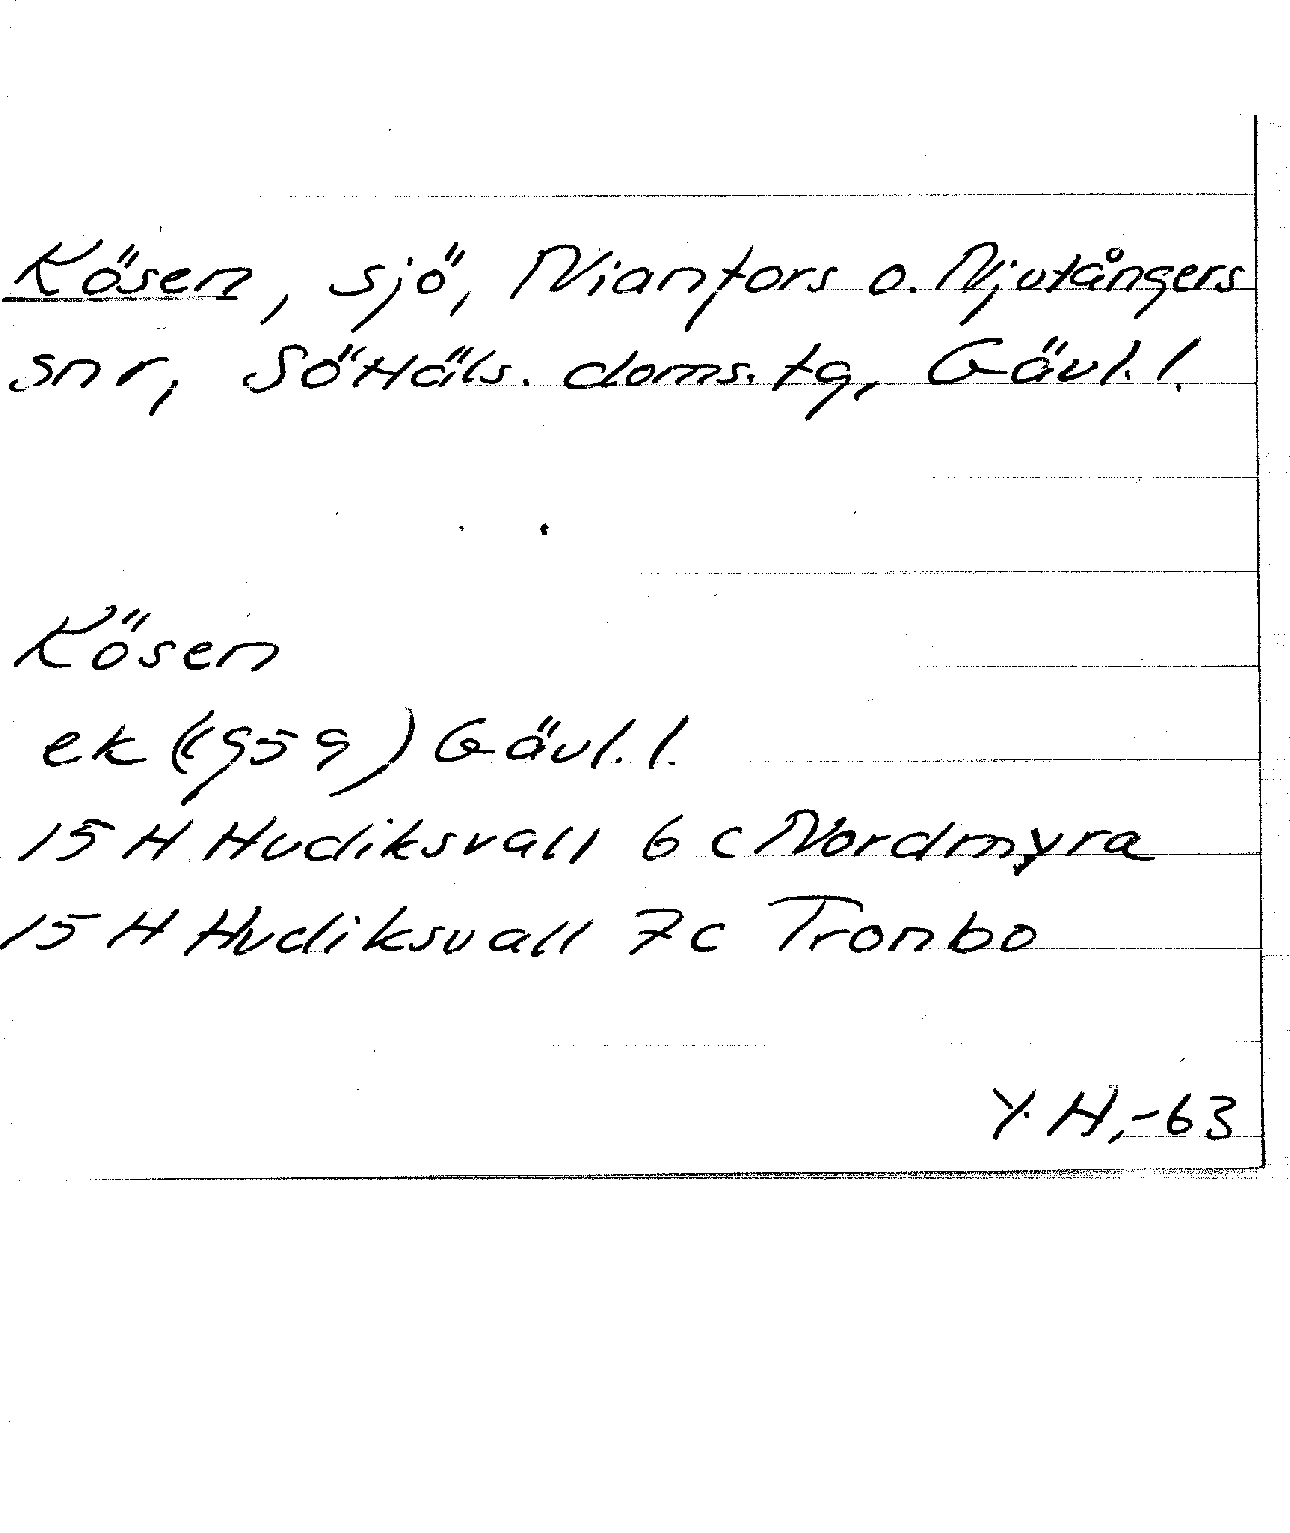 Kösen, sjö, Nianfors o. Njutångers
snr, SöHäls. doms.tg, Gävl.l.
Kösen
ek (1959) Gävl.l.
15 H Hudiksvall 6 c Nordmyra
15 H Hudiksvall 7c Tronbo
Y.H,-63